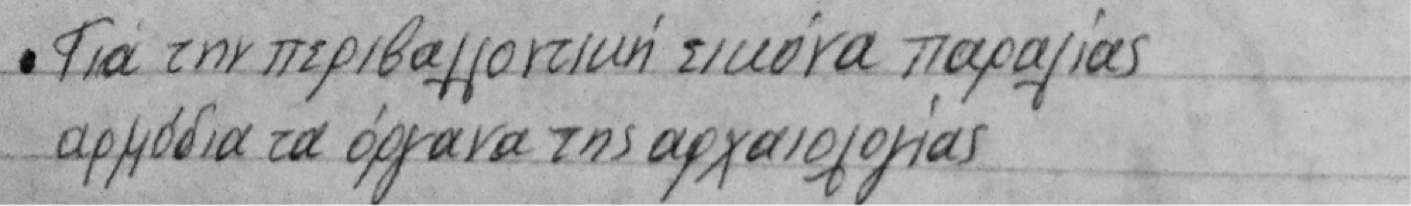 • Γιά την περιβαλλοντική εικόνα παραλίας
αρμόδια τα όργανα της αρχαιολογίας